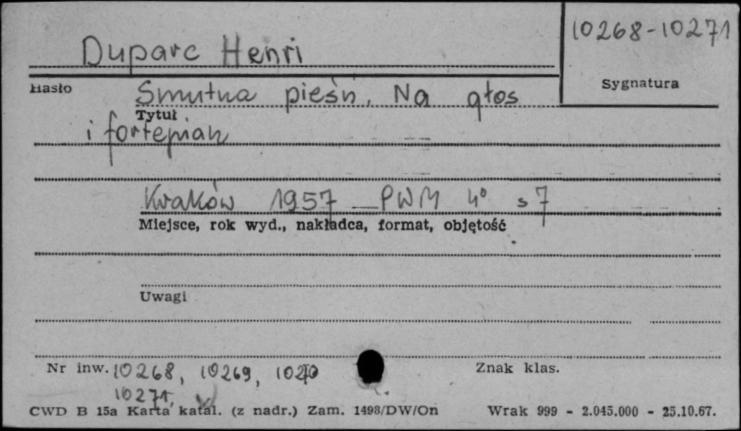 10268-10271
Duparc Henri
Hasło
Sygnatura
Smutna pieśń. Na głos
Tytuł
i fortepian
Kraków 1957 PWM 4° s 7
Miejsce, rok wyd., nakładca, format, objętość
Uwagi
Nr inw. 10268, 10269, 10270
Znak klas.
10271,
CWD B 15a Karta katal. (z nadr.) Zam. 1498/DW/On Wrak 999 - 2.045.000 - 25.10.67.